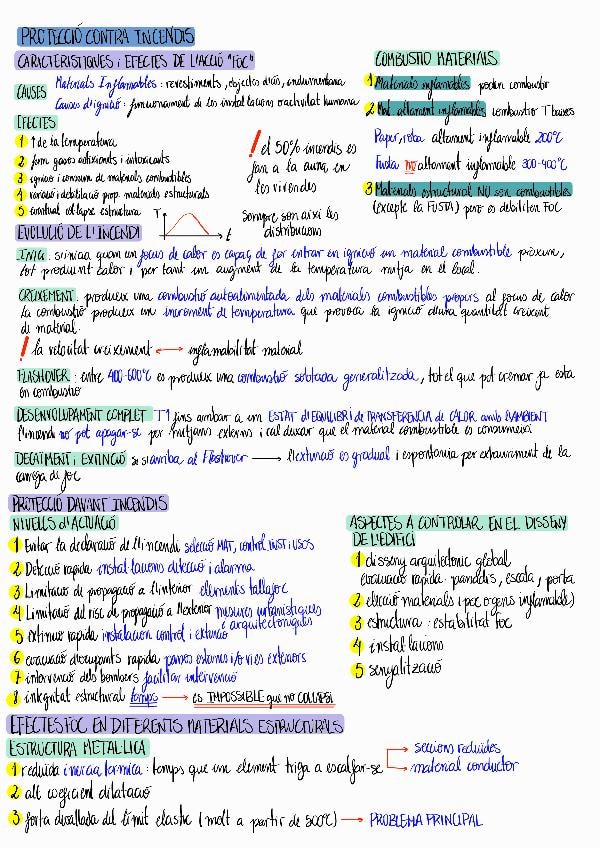 PROTECCIÓ CONTRA INCENDIS
CARACTERÍSTIQUES i EFECTES DE L'ACCIÓ "FOC"
CAUSES
Materials Inflamables: revestiments, objectes diaris, indumentaria
Causes d'ignició: funcionament de les instal·lacions o activitat humana
EFECTES
1 ↑ de la temperatura
2 fum gasos asfixiants i intoxicants
3 ignició i consum de materials combustibles
4 variació i debilitació prop. materials estructurals
5 eventual col·lapse estructura
T
t
! el 50% incendis es
fan a la cuina, en
les vivendes
Sempre son així les
distribucions
COMBUSTIO MATERIALS
1 Materials inflamables poden combustir
2 Mat. altament inflamables combustio T baixes
Paper, roba altament inflamable 200°C
Fusta no altament inflamable 300-400°C
3 Materials estructural NO son combustibles
(excepte la FUSTA) però es debiliten FOC
EVOLUCIÓ DE L'INCENDI
INICI: s'inicia quan un focus de calor es capaç de fer entrar en ignició un material combustible pròxim,
tot produint calor i per tant un augment de la temperatura mitja en el local.
CREIXEMENT: produeix una combustió autoalimentada dels materials combustibles propers al focus de calor
la combustió produeix un increment de temperatura que provoca la ignició d'una quantitat creixent
de material.
! la velocitat creixement ↔ inflamabilitat material
FLASHOVER: entre 400-600°C es produeix una combustió sobtada generalitzada, tot el que pot cremar ja esta
en combustio
DESENVOLUPAMENT COMPLET T↑ fins arribar a un ESTAT D'EQUILIBRI de TRANSFERENCIA de CALOR amb L'AMBIENT
l'incendi no pot apagar-se per mitjans externs i cal deixar que el material combustible es consumeixi
DECAÏMENT i EXTINCIÓ si s'arriba al Flashover → l'extinció es gradual i espontania per exhauriment de la
carrega de foc
PROTECCIÓ DAVANT INCENDIS
NIVELLS d'ACTUACIÓ
1 Evitar la declaració de l'incendi selecció MAT, control INST i USOS
2 Detecció rapida instal·lacions detecció i alarma
3 Limitació de propagació a l'interior elements tallafoc
4 Limitació del risc de propagació a l'exterior mesures urbanístiques
i arquitectoniques
5 extinció rapida instalacion control i extinció
6 evacuació d'ocupants rapida passos externs i/o vies exteriors
7 intervenció dels bombers facilitar intervenció
8 integritat estructural temps → es IMPOSSIBLE que no COLAPSI
ASPECTES A CONTROLAR EN EL DISSENY
DE L'EDIFICI
1 disseny arquitectonic global
evacuació rapida: passadis, escala, porta
2 elecció materials (poc o gens inflamable)
3 estructura: estabilitat foc
4 instal·lacions
5 senyalització
EFECTES FOC EN DIFERENTS MATERIALS ESTRUCTURALS
ESTRUCTURA METAL·LICA
1 reduida inercia termica: temps que un element triga a escalfar-se → seccions reduides
→ material conductor
2 alt coeficient dilatació
3 forta davallada del límit elastic (molt a partir de 500°C) → PROBLEMA PRINCIPAL